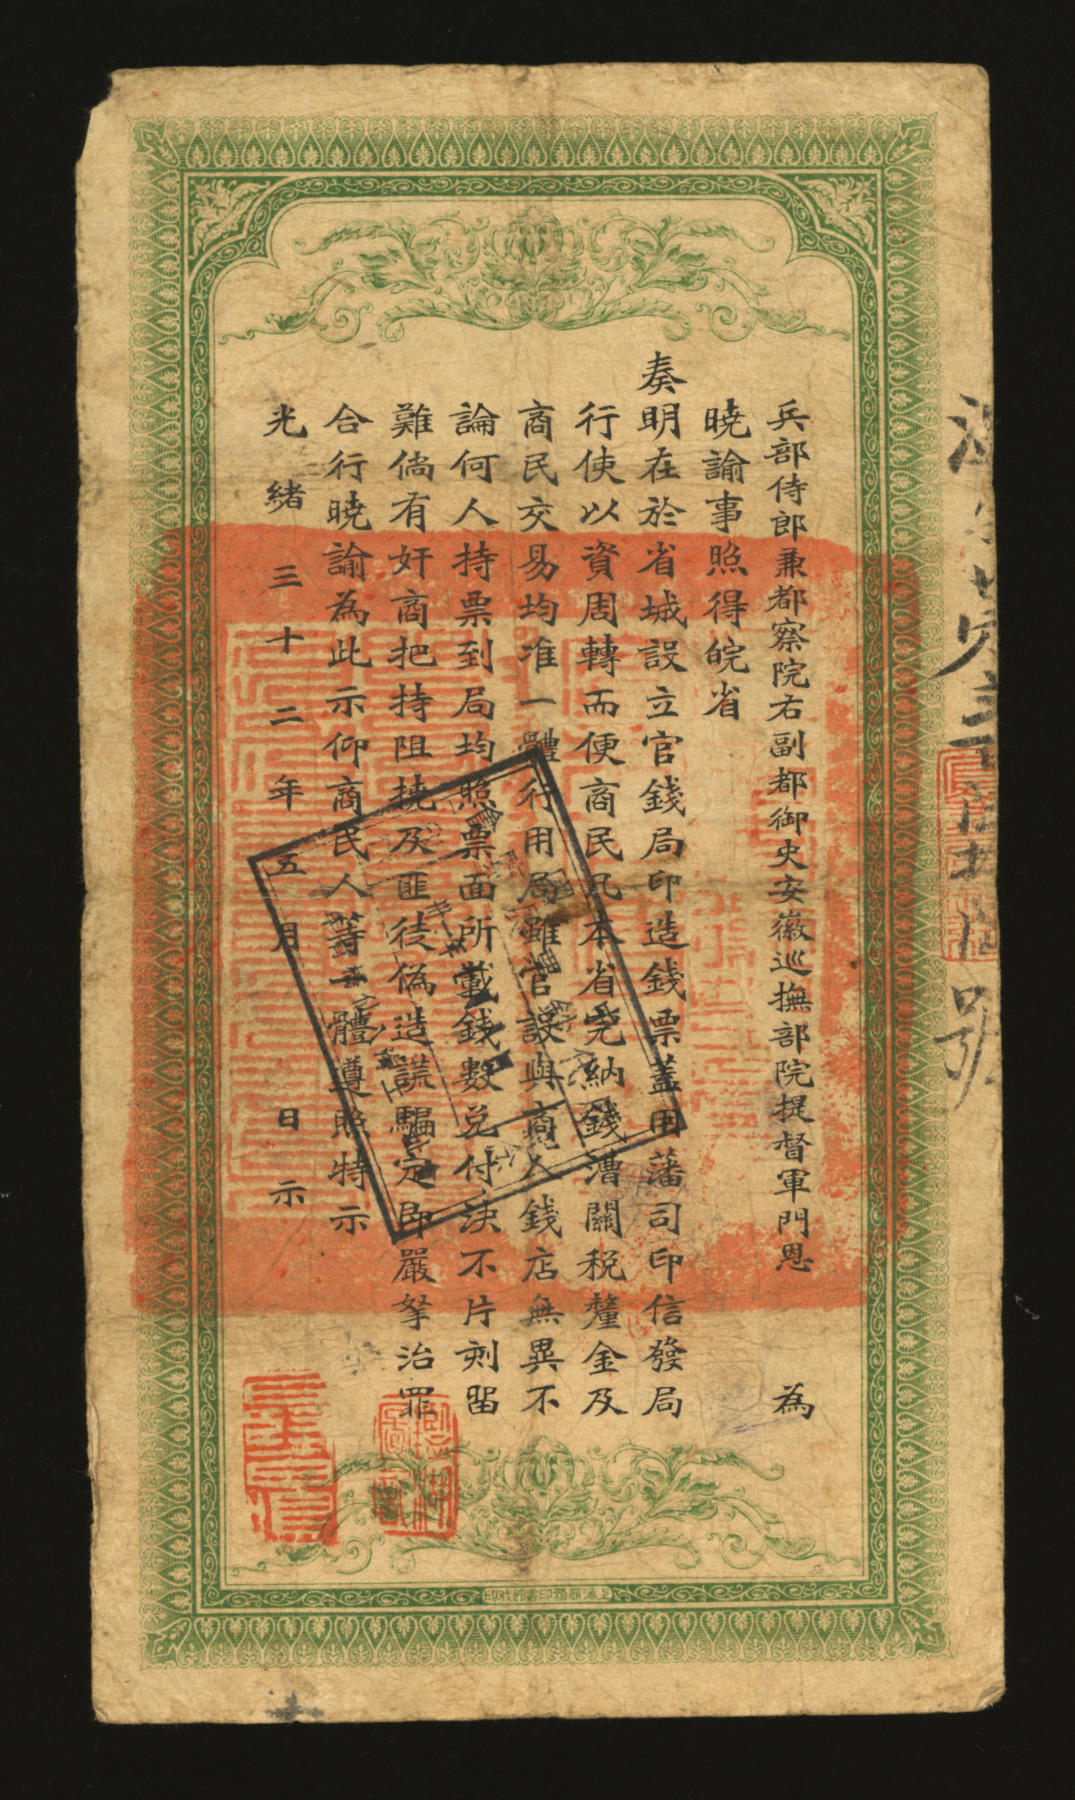 兵部侍郎兼都察院右副都御史安徽巡撫部院提督軍門恩　為
曉諭事照得皖省
奏明在於省城設立官錢局印造錢票蓋用藩司印信發局
行使以資周轉而便商民凡本省完納錢漕關稅釐金及
商民交易均准一體行用局雖官設與商人錢店無異不
論何人持票到局均照票面所載錢數兌付決不片刻留
難倘有奸商把持阻撓及匪徒偽造謊騙定即嚴拏治罪
合行曉諭為此示仰商民人等一體遵照特示
光緒三十二年五月　日示
上海商務印書館代印